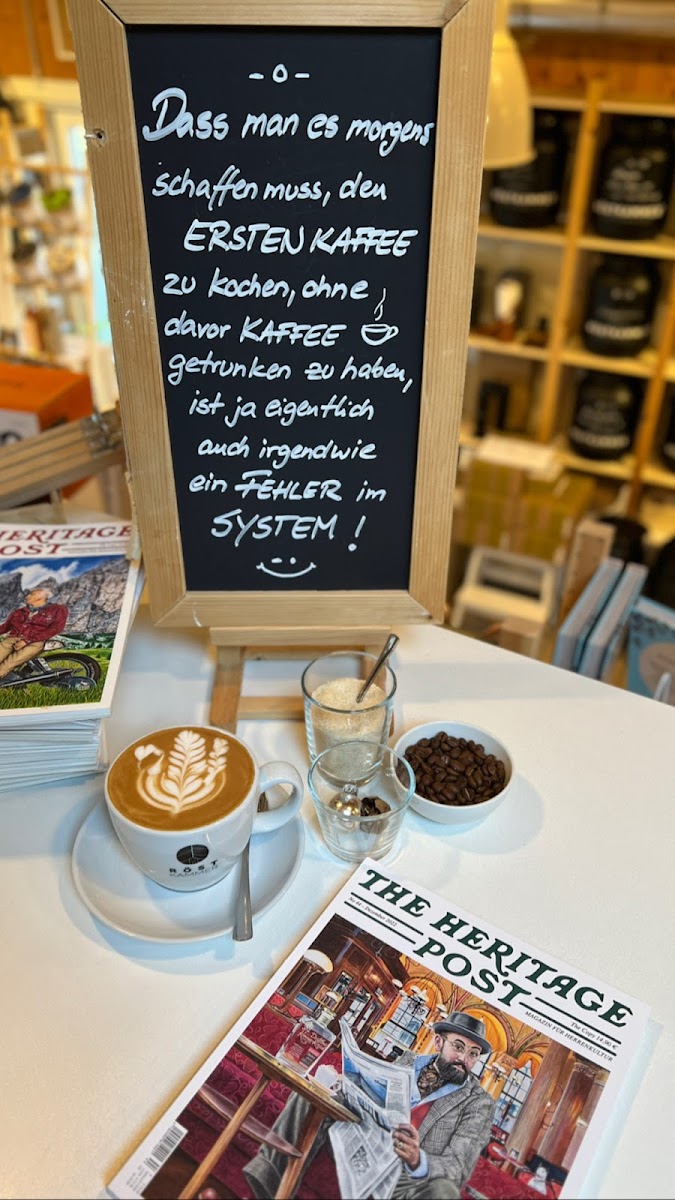 - o -
Dass man es morgens
schaffen muss, den
ERSTEN KAFFEE
zu kochen, ohne
davor KAFFEE
getrunken zu haben,
ist ja eigentlich
auch irgendwie
ein FEHLER im
SYSTEM !
HERITAGE
POST
RÖST
KAMMER
THE HERITAGE
POST
No 44 - Dezember 2022
The Copy 14,90 €
MAGAZIN FÜR HERRENKULTUR